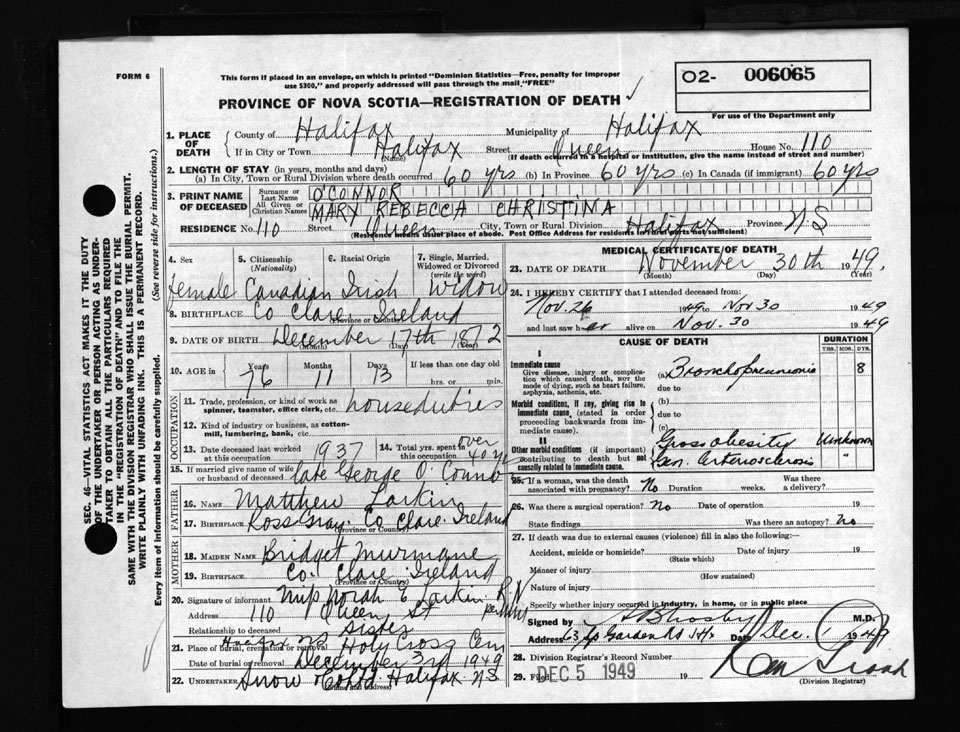 FORM 6
This form if placed in an envelope, on which is printed "Dominion Statistics—Free, penalty for improper
use $300," and properly addressed will pass through the mail "FREE"
O2- 006065
PROVINCE OF NOVA SCOTIA—REGISTRATION OF DEATH
For use of the Department only
1. PLACE OF DEATH
County of Halifax Municipality of Halifax
If in City or Town Halifax Street Queen House No. 110
(Name) (If death occurred in a hospital or institution, give the name instead of street and number)
2. LENGTH OF STAY (in years, months and days)
(a) In City, Town or Rural Division where death occurred 60 yrs (b) In Province 60 yrs (c) In Canada (if immigrant) 60 yrs
3. PRINT NAME OF DECEASED
Surname or Last Name O'CONNOR
All Given or Christian Names MARY REBECCA CHRISTINA
RESIDENCE No. 110 Street Queen City, Town or Rural Division Halifax Province N.S
(Residence means usual place of abode. Post Office Address for residents in rural parts not sufficient)
4. Sex 5. Citizenship (Nationality) 6. Racial Origin 7. Single, Married, Widowed or Divorced (write the word)
female Canadian Irish Widow
8. BIRTHPLACE Co Clare Ireland
(Province or Country)
9. DATE OF BIRTH December 17th 1872
(Month) (Day) (Year)
10. AGE in Years 76 Months 11 Days 13 If less than one day old hrs. or min.
OCCUPATION
11. Trade, profession, or kind of work as spinner, teamster, office clerk, etc. houseduties
12. Kind of industry or business, as cotton-mill, lumbering, bank, etc.
13. Date deceased last worked at this occupation 1937 14. Total yrs. spent at this occupation over 40 yrs
15. If married give name of wife or husband of deceased late George O'Connor
FATHER
16. Name Matthew Larkin
17. BIRTHPLACE Co Clare Ireland
(Province or Country)
MOTHER
18. MAIDEN NAME Bridget
19. BIRTHPLACE Co. Clare Ireland
(Province or Country)
20. Signature of informant Miss Norah C Larkin R.N
Address 110 Queen St
Relationship to deceased sister
21. Place of burial, cremation or removal Halifax NS Holy Cross Cem
Date of burial or removal December 3rd 1949
22. UNDERTAKER Snow & Co Ltd. Halifax N S
(Name and address)
MEDICAL CERTIFICATE OF DEATH
23. DATE OF DEATH November 30th 1949
(Month) (Day) (Year)
24. I HEREBY CERTIFY that I attended deceased from:
Nov. 26 1949 to Nov 30 1949
and last saw her alive on Nov. 30 1949
CAUSE OF DEATH DURATION
YRS. MOS. DYS.
I
Immediate cause
Give disease, injury or complication which caused death, not the mode of dying, such as heart failure, asphyxia, asthenia, etc.
(a) Bronchopneumonia 8
due to
Morbid conditions, if any, giving rise to immediate cause, (stated in order proceeding backwards from immediate cause).
(b)
due to
(c)
II
Other morbid conditions (if important) contributing to death but not causally related to immediate cause.
Gross obesity Unknown
Gen. Arteriosclerosis "
25. If a woman, was the death associated with pregnancy? No Duration weeks. Was there a delivery?
26. Was there a surgical operation? No Date of operation 19
State findings Was there an autopsy? No
27. If death was due to external causes (violence) fill in also the following:—
Accident, suicide or homicide? Date of injury 19
(State which)
Manner of injury
(How sustained)
Nature of injury
Specify whether injury occurred in industry, in home, or in public place
Signed by M.D.
Address Garden Rd Hfx Date Dec. 1 1949
28. Division Registrar's Record Number
29. Filed DEC 5 1949 19
(Division Registrar)
SEC. 46—VITAL STATISTICS ACT MAKES IT THE DUTY
OF THE UNDERTAKER OR PERSON ACTING AS UNDER-
TAKER TO OBTAIN ALL THE PARTICULARS REQUIRED
IN THE "REGISTRATION OF DEATH" AND TO FILE THE
SAME WITH THE DIVISION REGISTRAR WHO SHALL ISSUE THE BURIAL PERMIT.
WRITE PLAINLY WITH UNFADING INK. THIS IS A PERMANENT RECORD.
Every item of information should be carefully supplied. (See reverse side for instructions.)